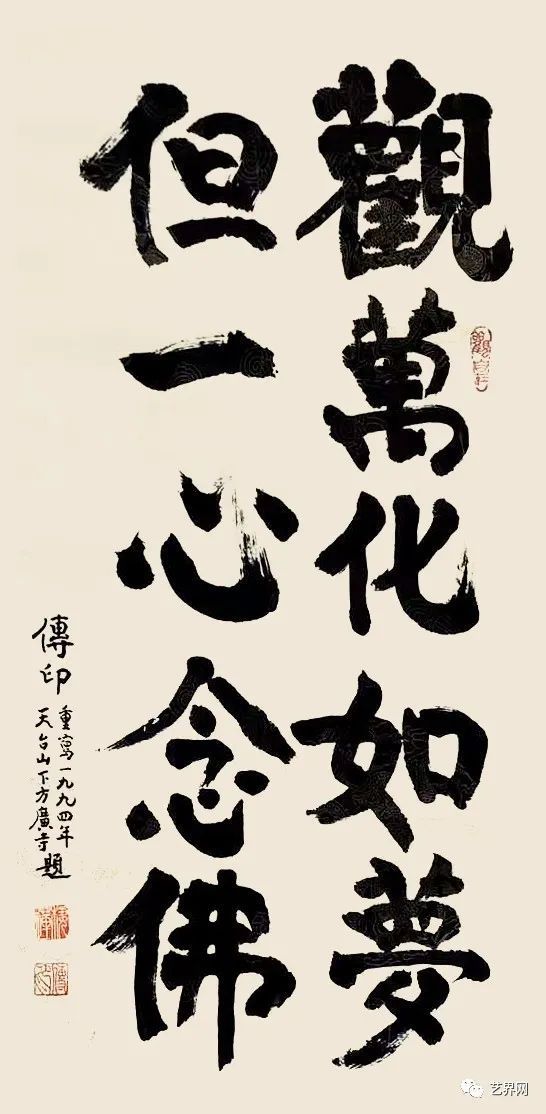 觀萬化如夢
但一心念佛
傳印
重寫一九九四年
天台山下方廣寺題
艺界网